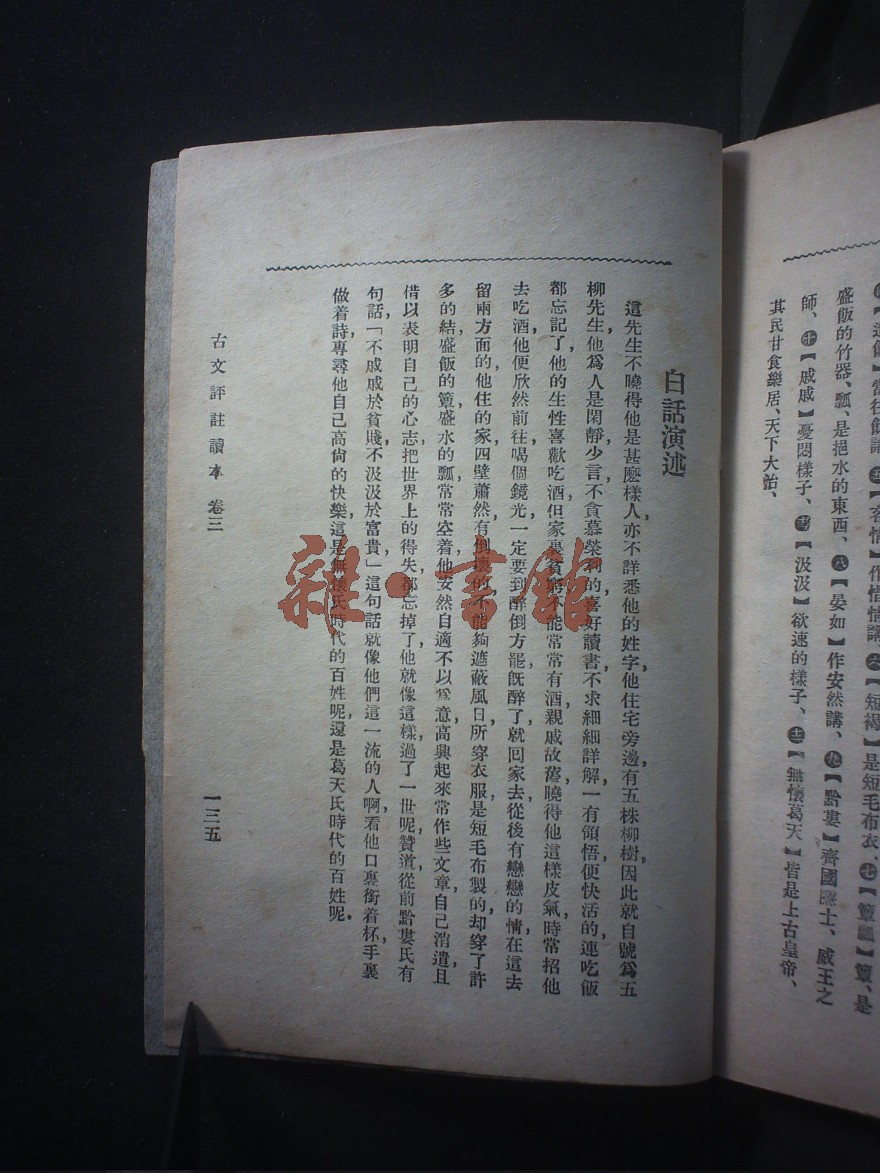 【造飲】當往飲講、㊄【吝情】作惜情講、㊅【短褐】是短毛布衣、㊆【簞瓢】簞、是
盛飯的竹器、瓢、是挹水的東西、㊇【晏如】作安然講、㊈【黔婁】齊國隱士、威王之
師、㊉【戚戚】憂悶樣子、【汲汲】欲速的樣子、【無懷葛天】皆是上古皇帝、
其民甘食樂居、天下大治、
白話演述
這先生不曉得他是甚麽樣人,亦不詳悉他的姓字,他住宅旁邊有五株柳樹,因此就自號爲五
柳先生,他爲人是閑靜少言,不貪慕榮利的,喜好讀書,不求細細詳解,一有領悟,便快活的連吃飯
都忘記了,他的生性喜歡吃酒,但家裏貧窮,不能常常有酒,親戚故舊,曉得他這樣皮氣,時常招他
去吃酒,他便欣然前往,喝個鏡光,一定要到醉倒方罷,旣醉了,就回家去,從後有戀戀的情,在這去
留兩方面的,他住的家,四壁蕭然,有倒壞的,不能夠遮蔽風日,所穿衣服,是短毛布製的,却穿了許
多的結,盛飯的簞,盛水的瓢,常常空着,他安然自適,不以爲意,高興起來,常作些文章,自己消遣,且
借以表明自己的心志,把世界上的得失都忘掉了,他就像這樣過了一世呢,贊道,從前黔婁氏有
句話,「不戚戚於貧賤,不汲汲於富貴」這句話就像他們這一流的人啊,看他口裏銜着杯,手裏
做着詩,專尋他自己高尙的快樂,這是無懷氏時代的百姓呢,還是葛天氏時代的百姓呢.
古文評註讀本 卷三
一三五
雜·書館